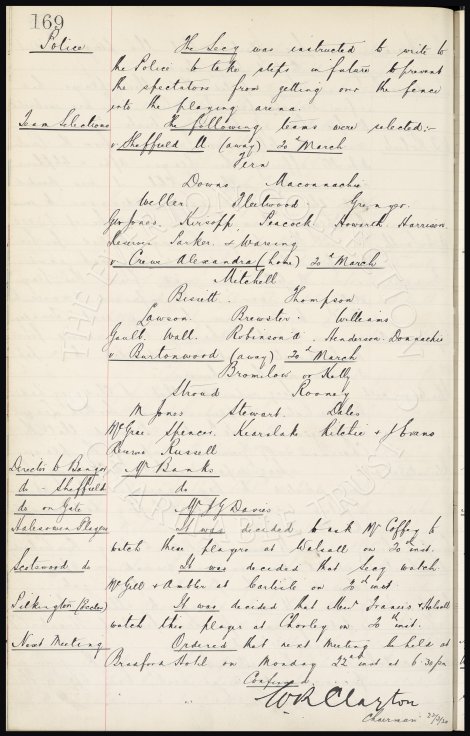 169
Police
The Secy was instructed to write to
the Police to take steps in future to prevent
the spectators from getting over the fence
into the playing arena.
Team Selections
The following teams were selected:-
v Sheffield U (away) 20th March
Fern
Downs Maconnachie
Weller Fleetwood Grenyer
Geo Jones. Kirsopp. Peacock. Howarth. Harrison
Reserves Parker & Wareing
v Crewe Alexandra (home) 20th March
Mitchell
Bissett. Thompson
Lawson. Brewster. Williams
Gault. Wall. Robinson A. Henderson. Donnachie
v Burtonwood (away) 20th March
Bromilow or Kelly
Stroud Rooney
M Jones Stewart. Dales
McGrae. Spencer. Kearslake. Ritchie & J Evans
Reserve Russell
Director to Bangor Mr Banks
do - Sheffield do
do on Gate Mr J G Davies
Halesowen Players
It was decided to ask Mr Coffey to
watch these players at Walsall on 20th inst.
Scotswood do
It was decided that Secy watch
McGill & Ambler at Carlisle on 20th inst.
Pilkington
It was decided that Messrs Francis & Halsall
watch this player at Chorley on 20th inst.
Next Meeting
Ordered that next Meeting be held at
Bradford Hotel on Monday 22nd inst at 6.30pm
Confirmed
W R Clayton
Chairman 22/3/20